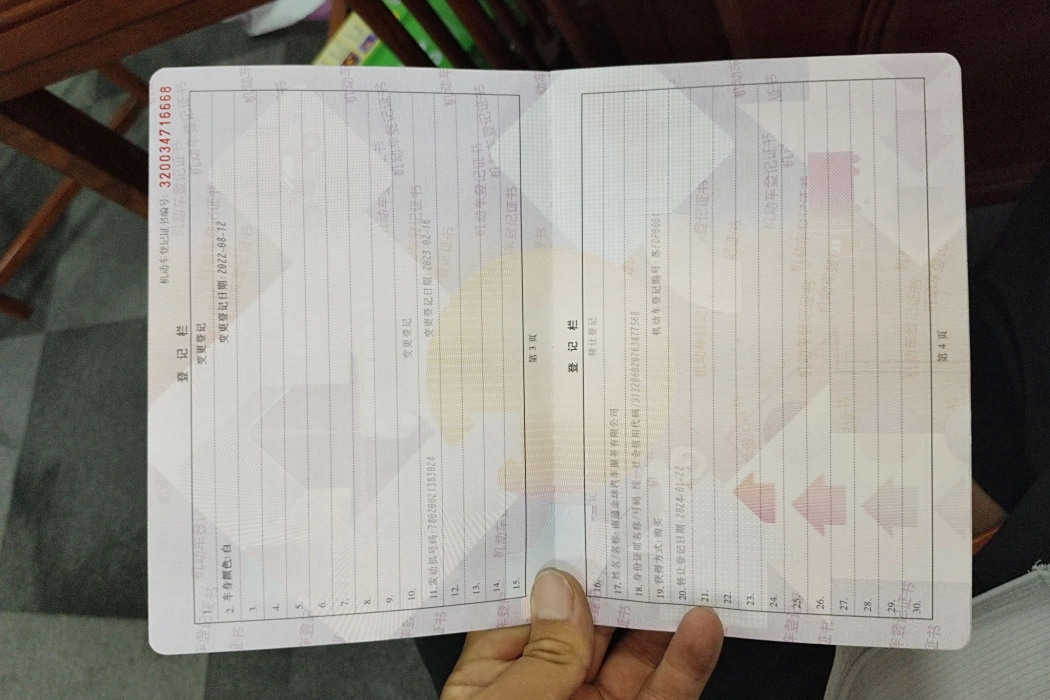 机动车登记证书编号: 320034716668
登 记 栏
1. 变更登记
2. 车身颜色:白 变更登记日期:2022-08-12
3.
4.
5.
6.
7.
8.
9.
10. 变更登记
11. 发动机号码:78020021383024 变更登记日期:2023-02-16
12.
13.
14.
15.
第 3 页
登 记 栏
16. 转让登记
17. 姓名/名称:南通金球汽车服务有限公司
18. 身份证明名称/号码 统一社会信用代码/913206020763477568
19. 获得方式:购买 机动车登记编号:苏FDP6601
20. 转让登记日期:2024-01-22
21.
22.
23.
24.
25.
26.
27.
28.
29.
30.
第 4 页